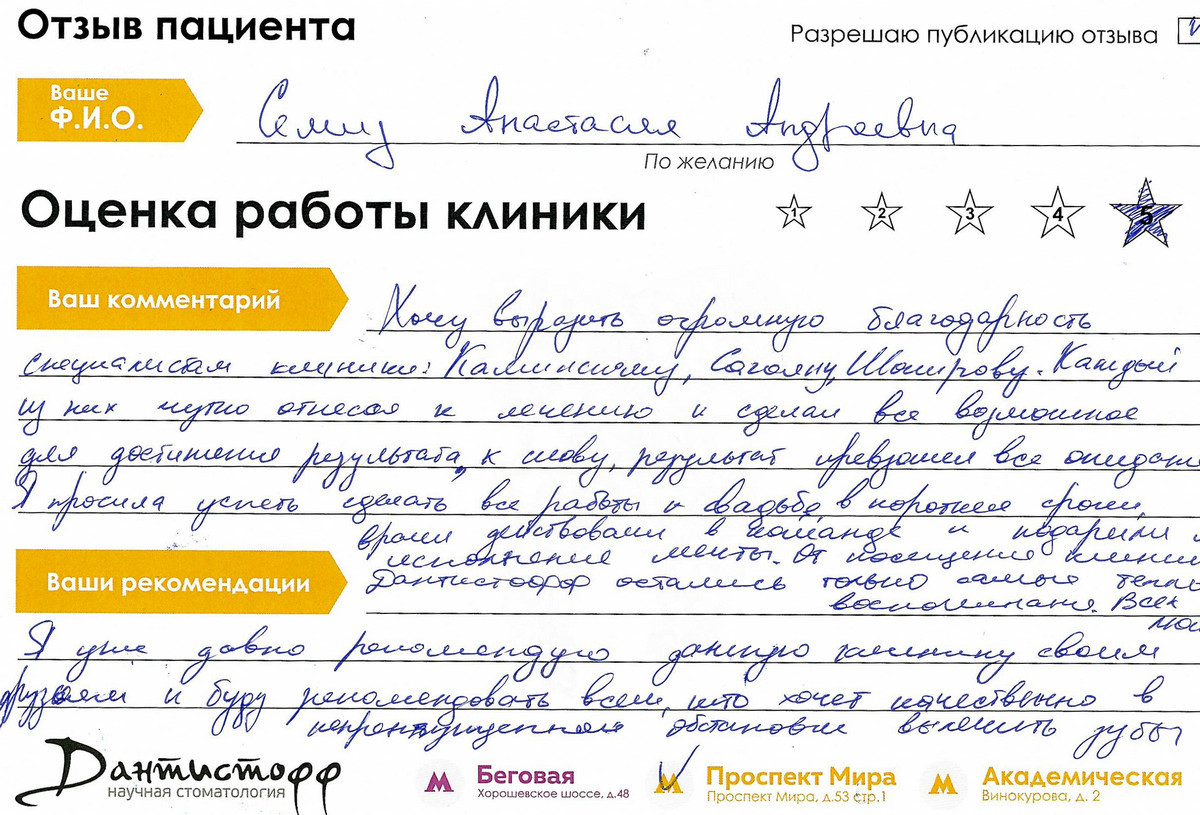 Отзыв пациента
Разрешаю публикацию отзыва
Ваше
Ф.И.О.
Анастасия Андреевна
По желанию
Оценка работы клиники
1 2 3 4 5
Ваш комментарий
Хочу выразить огромную благодарность
специалистам клиники: Калинскому, Саголяну, Шакирову. Каждый
из них чутко отнесся к лечению и сделал все возможное
для достижения результата, к слову, результат превзошел все ожидан
Я просила успеть сделать все работы к свадьбе в короткие сроки,
врачи действовали в команде и подарили
исполнение мечты. От посещения клиник
Ваши рекомендации
Дантистофф остались только самые теплы
воспоминания. Всех
Я уже давно рекомендую данную клинику своим
друзьям и буду рекомендовать всем, кто хочет качественно в
непринужденной обстановке вылечить зубы
Дантистофф
научная стоматология
Беговая
Хорошевское шоссе, д.48
Проспект Мира
Проспект Мира, д.53 стр.1
Академическая
Винокурова, д. 2